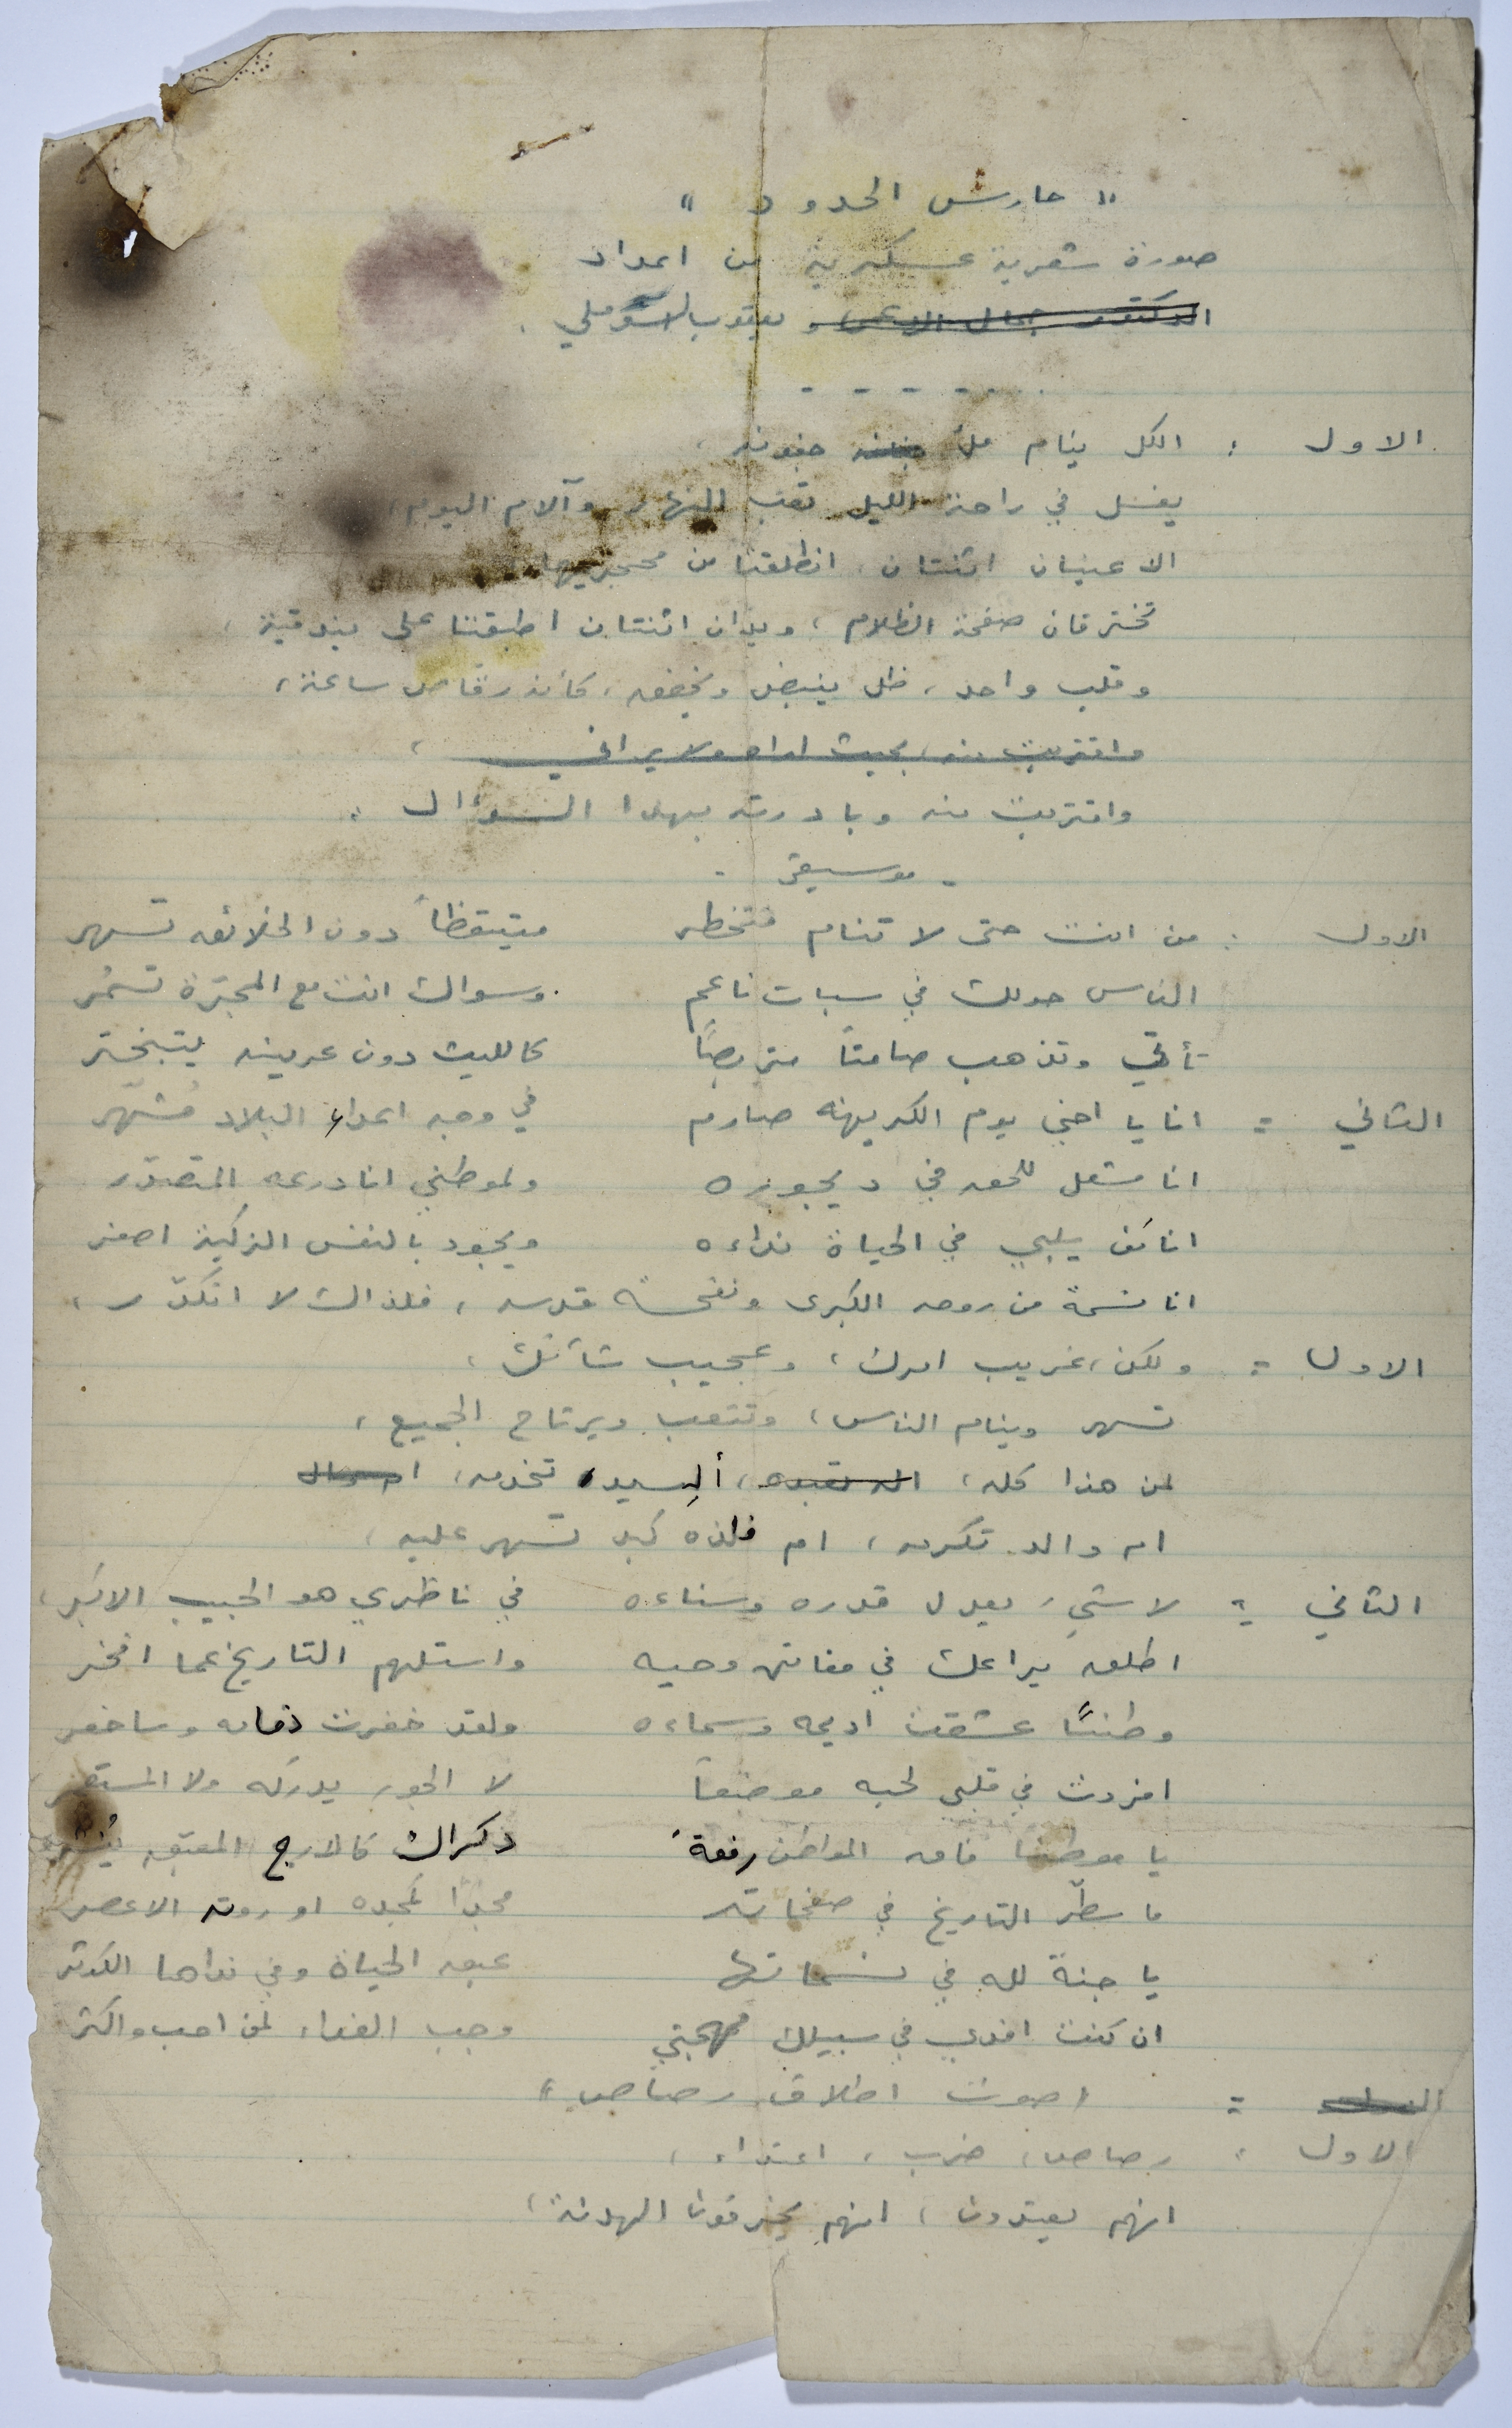 " حارس الحدود "
صورة شعرية عسكرية من اعداد
الدكتور جمال و يعقوب
الاول : الكل ينام ملأ جفونه ،
يغسل في راحة الليل تعب النهار وآلام اليوم ،
الا عينان اثنتان ، انطلقتا من محجريهما
تخترقان صفحة الظلام ، ويدان اثنتان اطبقتا على بندقية ،
وقلب واحد ، ظل ينبض ويخفق ، كأنه رقاص ساعة ،
واقتربت منه ، بحيث اراه ولا يراني ،
واقتربت منه وبادرته بهذا السؤال :
- موسيقى -
الاول : من انت حتى لا تنام فتخطر متيقظاً دون الخلائق تسهر
الناس حولك في سبات ناعم وسواك انت مع المجرّة تسمُر
تأتي وتذهب صامتاً متربصاً كالليث دون عرينه يتبختر
الثاني : انا يا اخي يوم الكريهة صارم في وجه اعداء البلاد مُشهّر
انا مشعل للحق في ديجوره ولموطني انا درعه المتصدّر
انا من يلبي في الحياة نداءه ويجود بالنفس الزكية اصغر
انا نسمة من روحه الكبرى ونفحة قدسه ، فلذاك لا اتكدّر ،
الاول : ولكن ، غريب امرك ، وعجيب شأنك ،
تسهر وينام الناس ، وتتعب ويرتاح الجميع ،
لمن هذا كله ، ألسيد تخدمه ،
ام والد تكرمه ، ام فلذة كبد تسهر عليه ،
الثاني : لا شيء يعدل قدره وسناءه في ناظري هو الحبيب الاكبر ،
اطلق يراعك في مفاتن وحيه واستلهم التاريخ عما افخر
وطنًا عشقت اديمه وسماءه ولقد خفرت ذمامه وسأخفر
افردت في قلبي لحبه موضعاً لا الجور يدركه ولا المستعمر
يا موطناً فاق المواطن رفعةً ذكراك كالارج المعتق
ما سطّر التاريخ في صفحاته مجداً كمجده او روته الاعصر
يا جنة لله في نسماتها عبق الحياة وفي نداها الكوثر
ان كنت افدي في سبيلك مهجتي وجب الفداء لمن احب واكثر
: " صوت اطلاق رصاص "
الاول : رصاص ، ضرب ، اعتداء ،
انهم يعتدون ، انهم يخرقون الهدنة ،